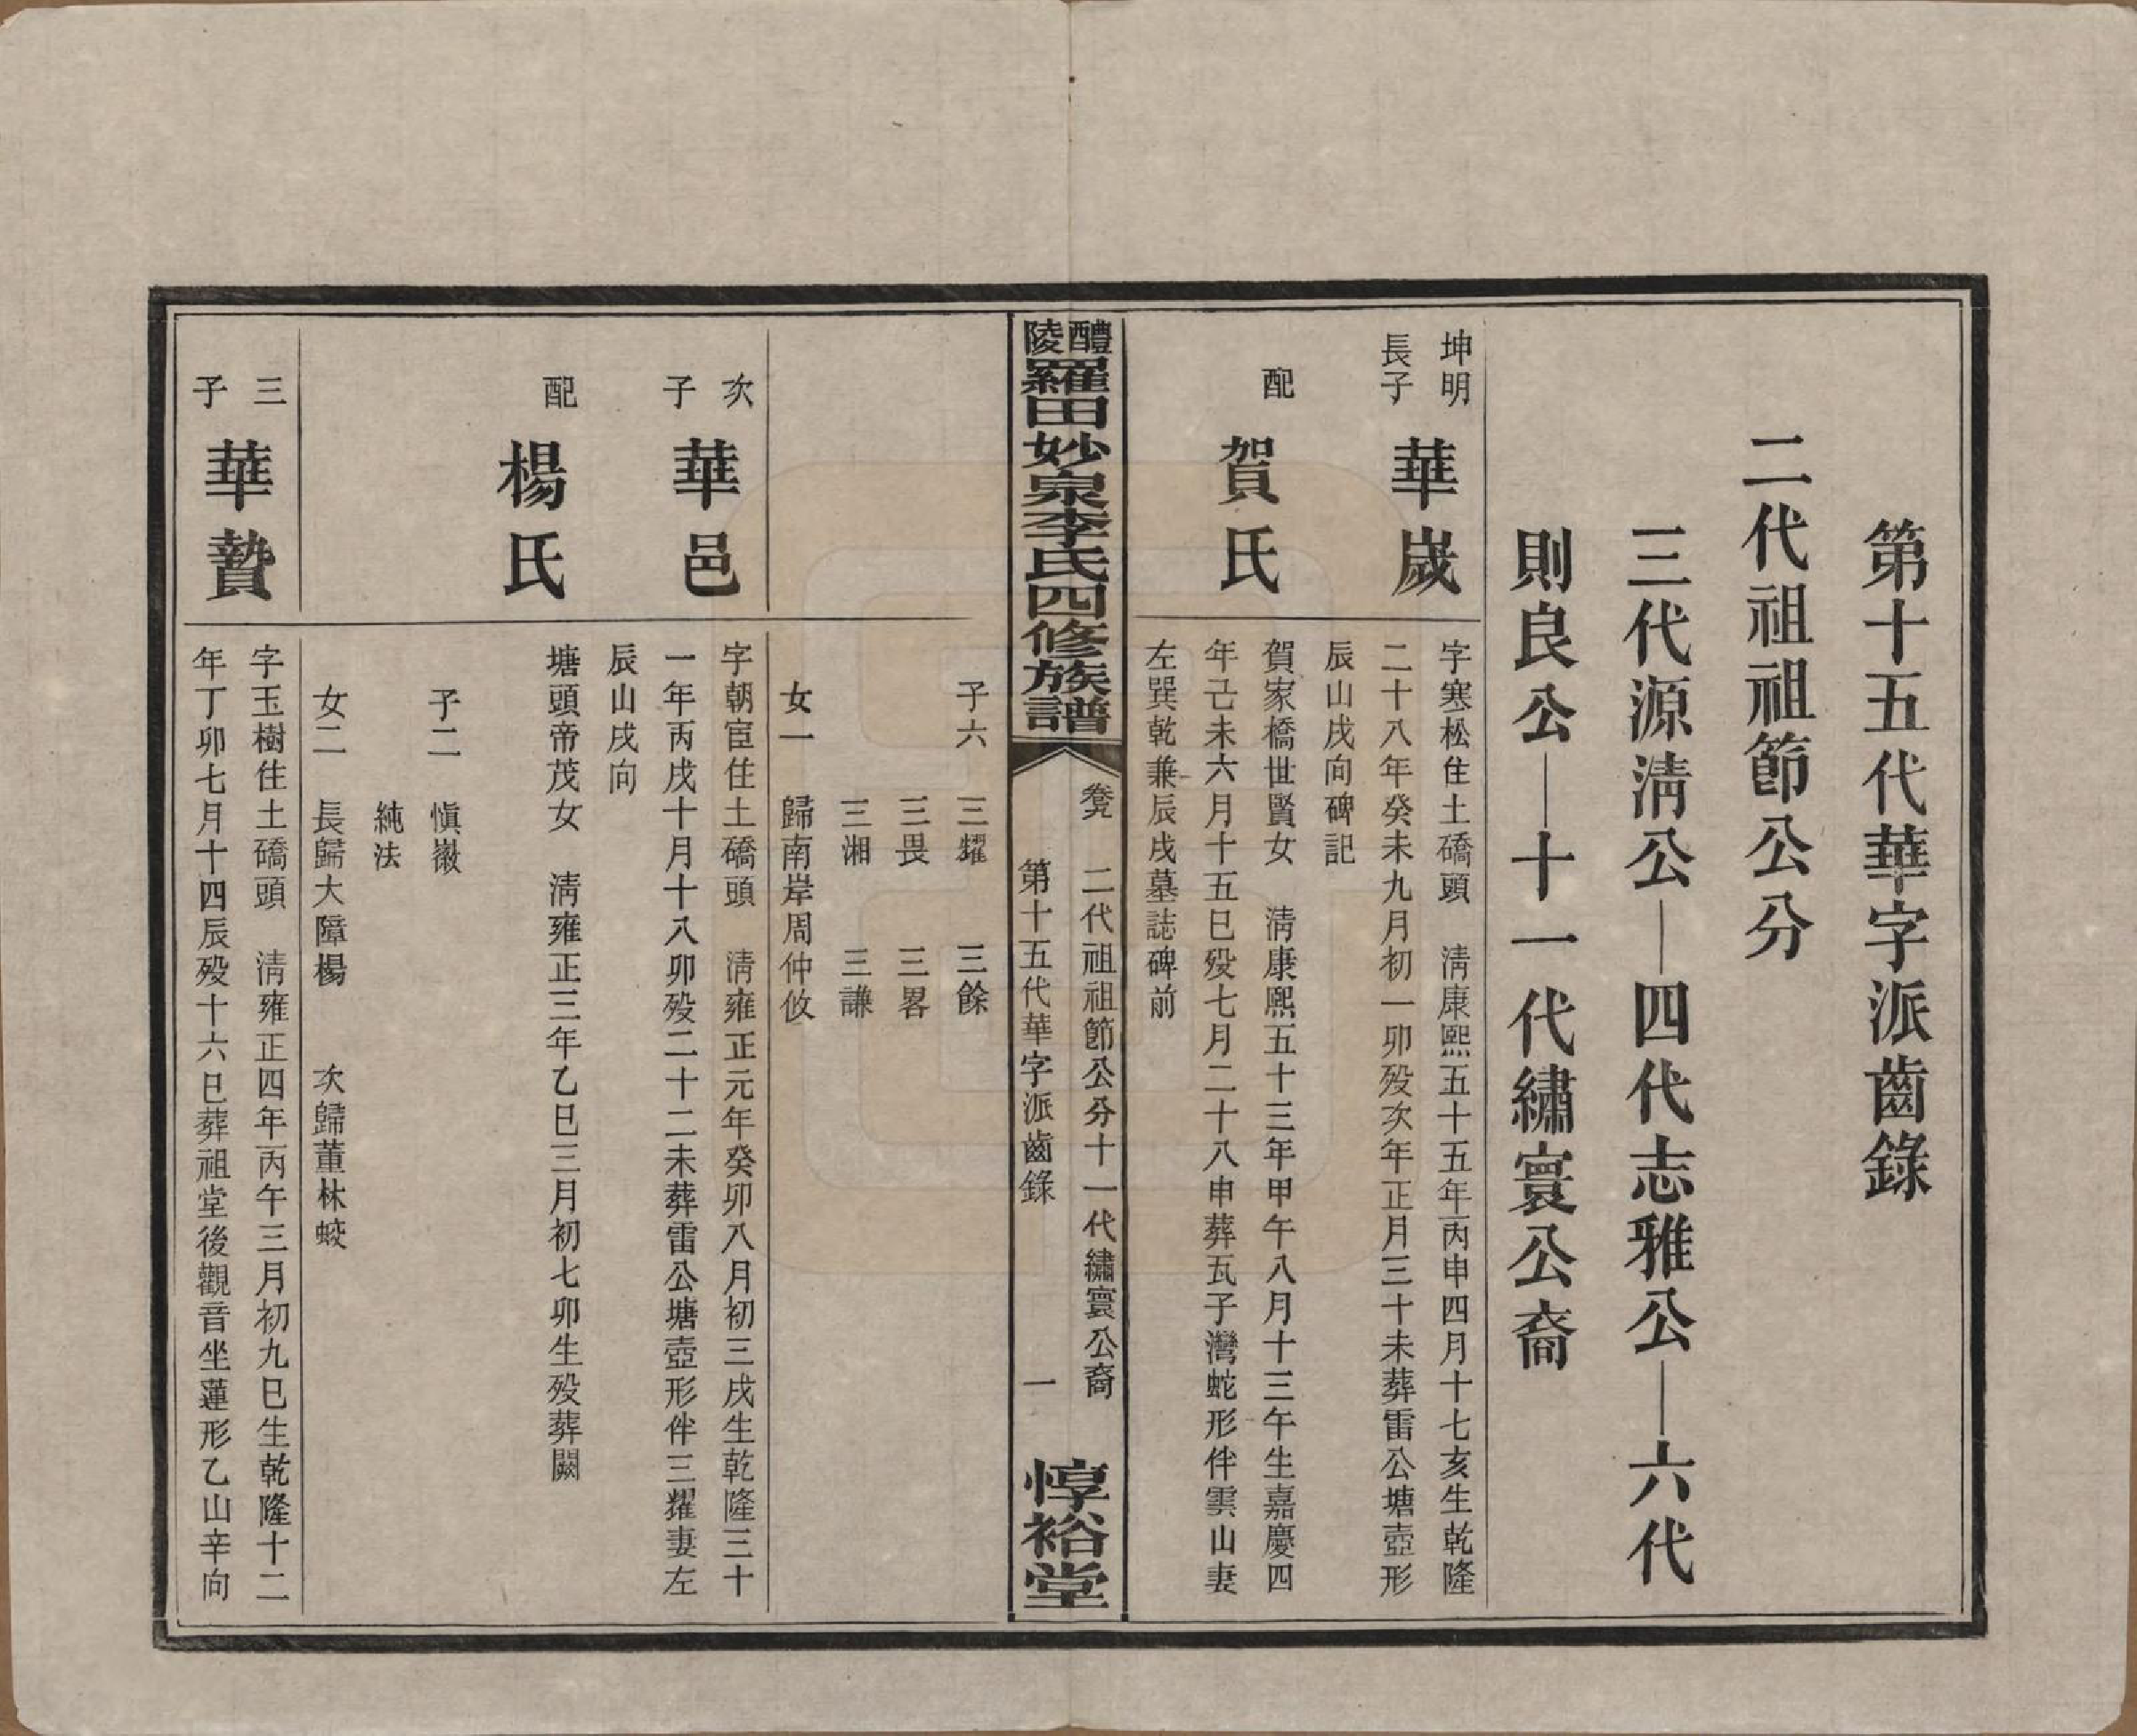 第十五代華字派齒錄
二代祖祖節公分
三代源清公—四代志雅公—六代
則良公—十一代繡寰公裔
坤明
長子
華嵗
字寒松住土磽頭　清康熙五十五年丙申四月十七亥生乾隆
二十八年癸未九月初一卯歿次年正月三十未葬雷公塘壺形
辰山戌向碑記
配
賀氏
賀家橋世賢女　清康熙五十三年甲午八月十三午生嘉慶四
年己未六月十五巳歿七月二十八申葬瓦子灣蛇形伴雲山妻
左巽乾兼辰戌墓誌碑前
醴陵羅田妙泉李氏四修族譜
卷　二代祖祖節公分十一代繡寰公裔
第十五代華字派齒錄　一
惇裕堂
子六　三耀　三餘
三畏　三畧
三湘　三謙
女一　歸南岸周仲攸
次子
華邑
字朝宦住土磽頭　清雍正元年癸卯八月初三戌生乾隆三十
一年丙戌十月十八卯歿二十二未葬雷公塘壺形伴三耀妻左
辰山戌向
配
楊氏
塘頭帝茂女　清雍正三年乙巳三月初七卯生歿葬闕
子二　慎徽
純法
女二　長歸大障楊　次歸董林蛟
三子
華贄
字玉樹住土磽頭　清雍正四年丙午三月初九巳生乾隆十二
年丁卯七月十四辰歿十六巳葬祖堂後觀音坐蓮形乙山辛向